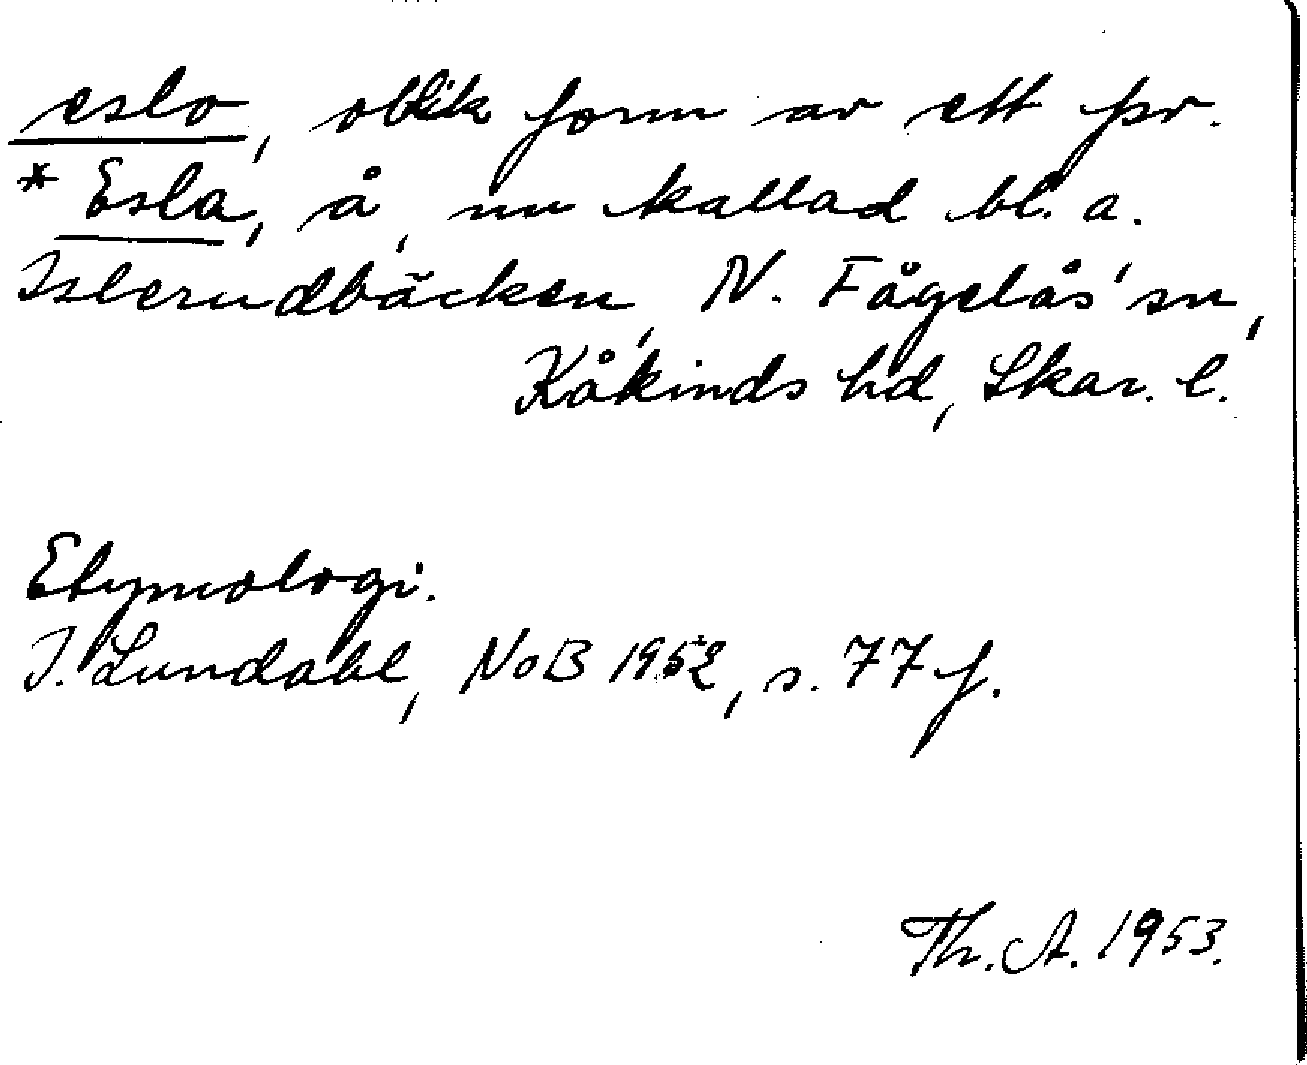 eslo, oblik form av ett fsv.
*Esla, å, nu kallad bl. a.
Islerudbäcken, N. Fågelås' sn,
Kåkinds hd, Skar. l.
Etymologi.
I. Lundahl, NoB 1952, s. 77 f.
Th. A. 1953.